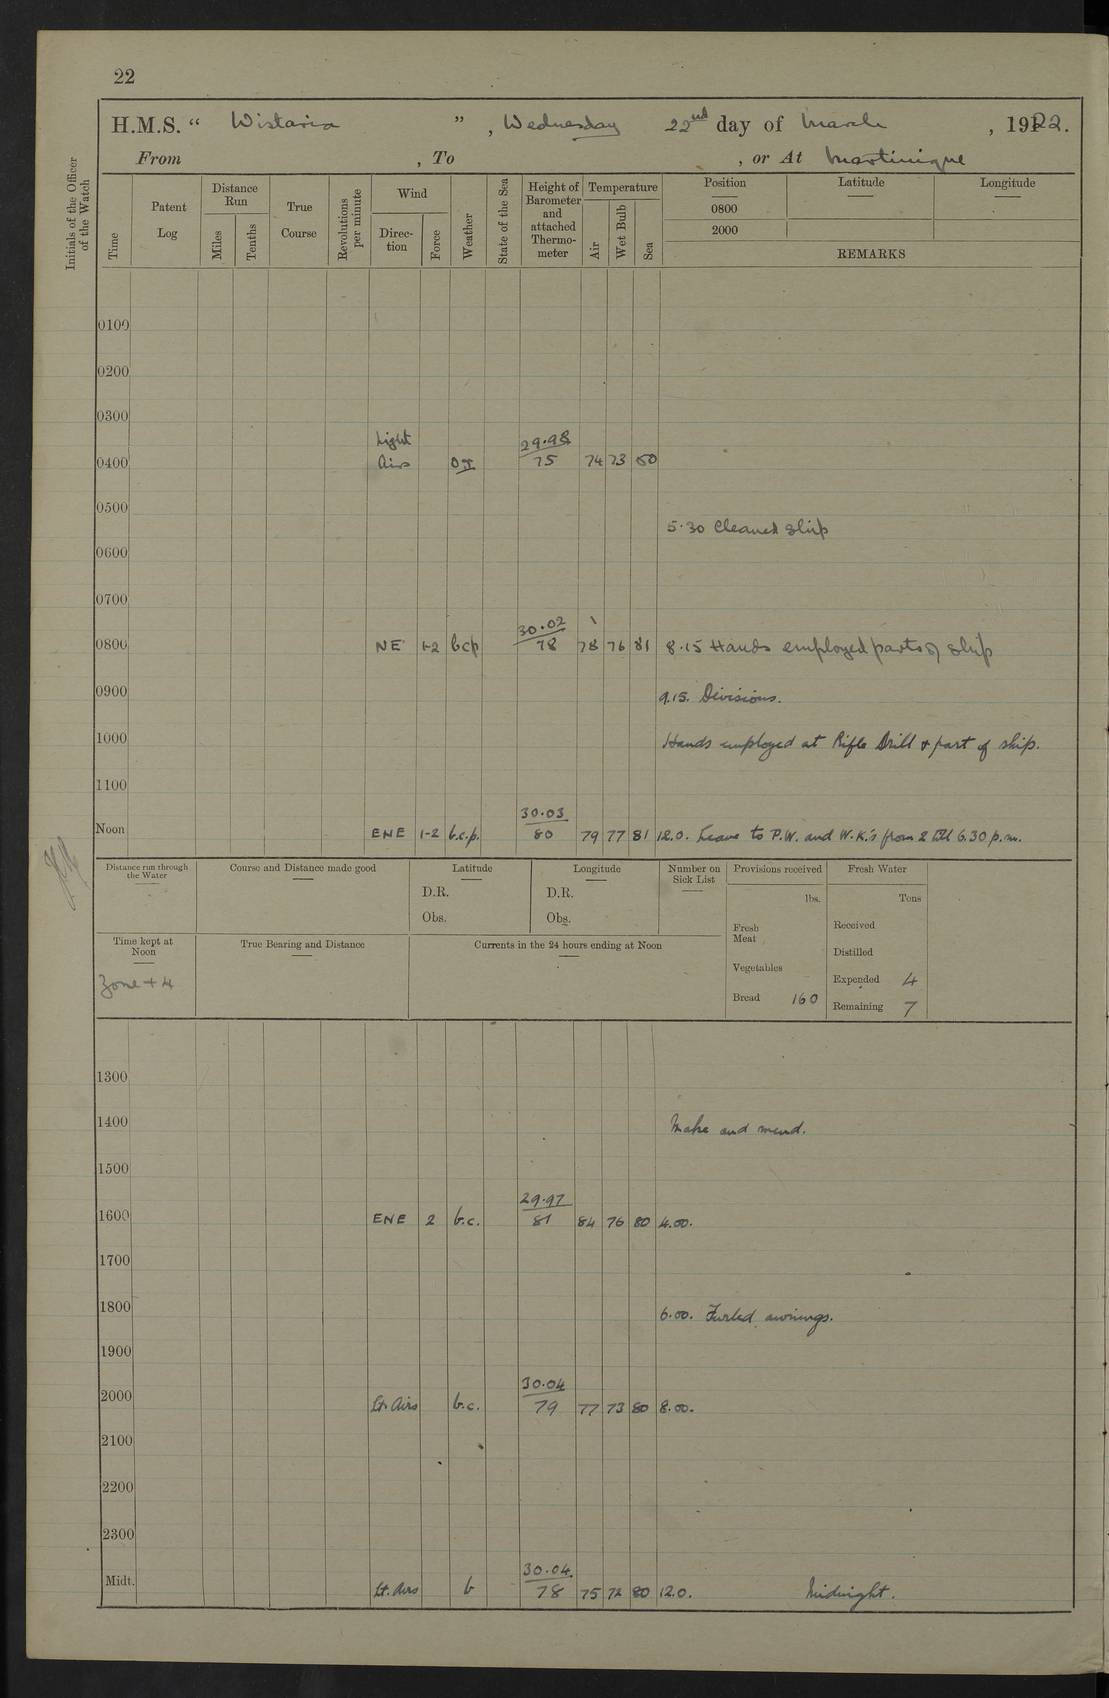 22
H.M.S. “ Wistaria ” , Wednesday 22nd day of March , 1922.
From , To , or At Martinique
Initials of the Officer of the Watch
Time
Patent Log
Distance Run
Miles
Tenths
True Course
Revolutions per minute
Wind
Direc-tion
Force
Weather
State of the Sea
Height of Barometer and attached Thermo-meter
Temperature
Air
Wet Bulb
Sea
Position Latitude Longitude
0800
2000
REMARKS
0100
0200
0300
Light 29.98
0400 Airs 75 74 73 80
0500
5.30 Cleaned Ship
0600
0700
30.02
0800 NE 1-2 bcp 78 78 76 81 8.15 Hands employed parts of ship
0900 9.15. Divisions.
1000 Hands employed at Rifle Drill & part of ship.
1100
30.03
Noon ENE 1-2 b.c.p. 80 79 77 81 12.0. Leave to P.W. and W.K.'s from 2 till 6.30 p.m.
Distance run through the Water
Course and Distance made good
Latitude
D.R.
Obs.
Longitude
D.R.
Obs.
Number on Sick List
Provisions received
lbs.
Fresh Meat
Vegetables
Bread 160
Fresh Water
Tons
Received
Distilled
Expended 4
Remaining 7
Time kept at Noon
Zone + 4
True Bearing and Distance
Currents in the 24 hours ending at Noon
1300
1400 Make and mend.
1500
29.97
1600 ENE 2 b.c. 81 84 76 80 4.00.
1700
1800 6.00. Furled awnings.
1900
30.04
2000 Lt. Airs b.c. 79 77 73 80 8.00.
2100
2200
2300
30.04
Midt. Lt. Airs b 78 75 72 80 12.0. Midnight.